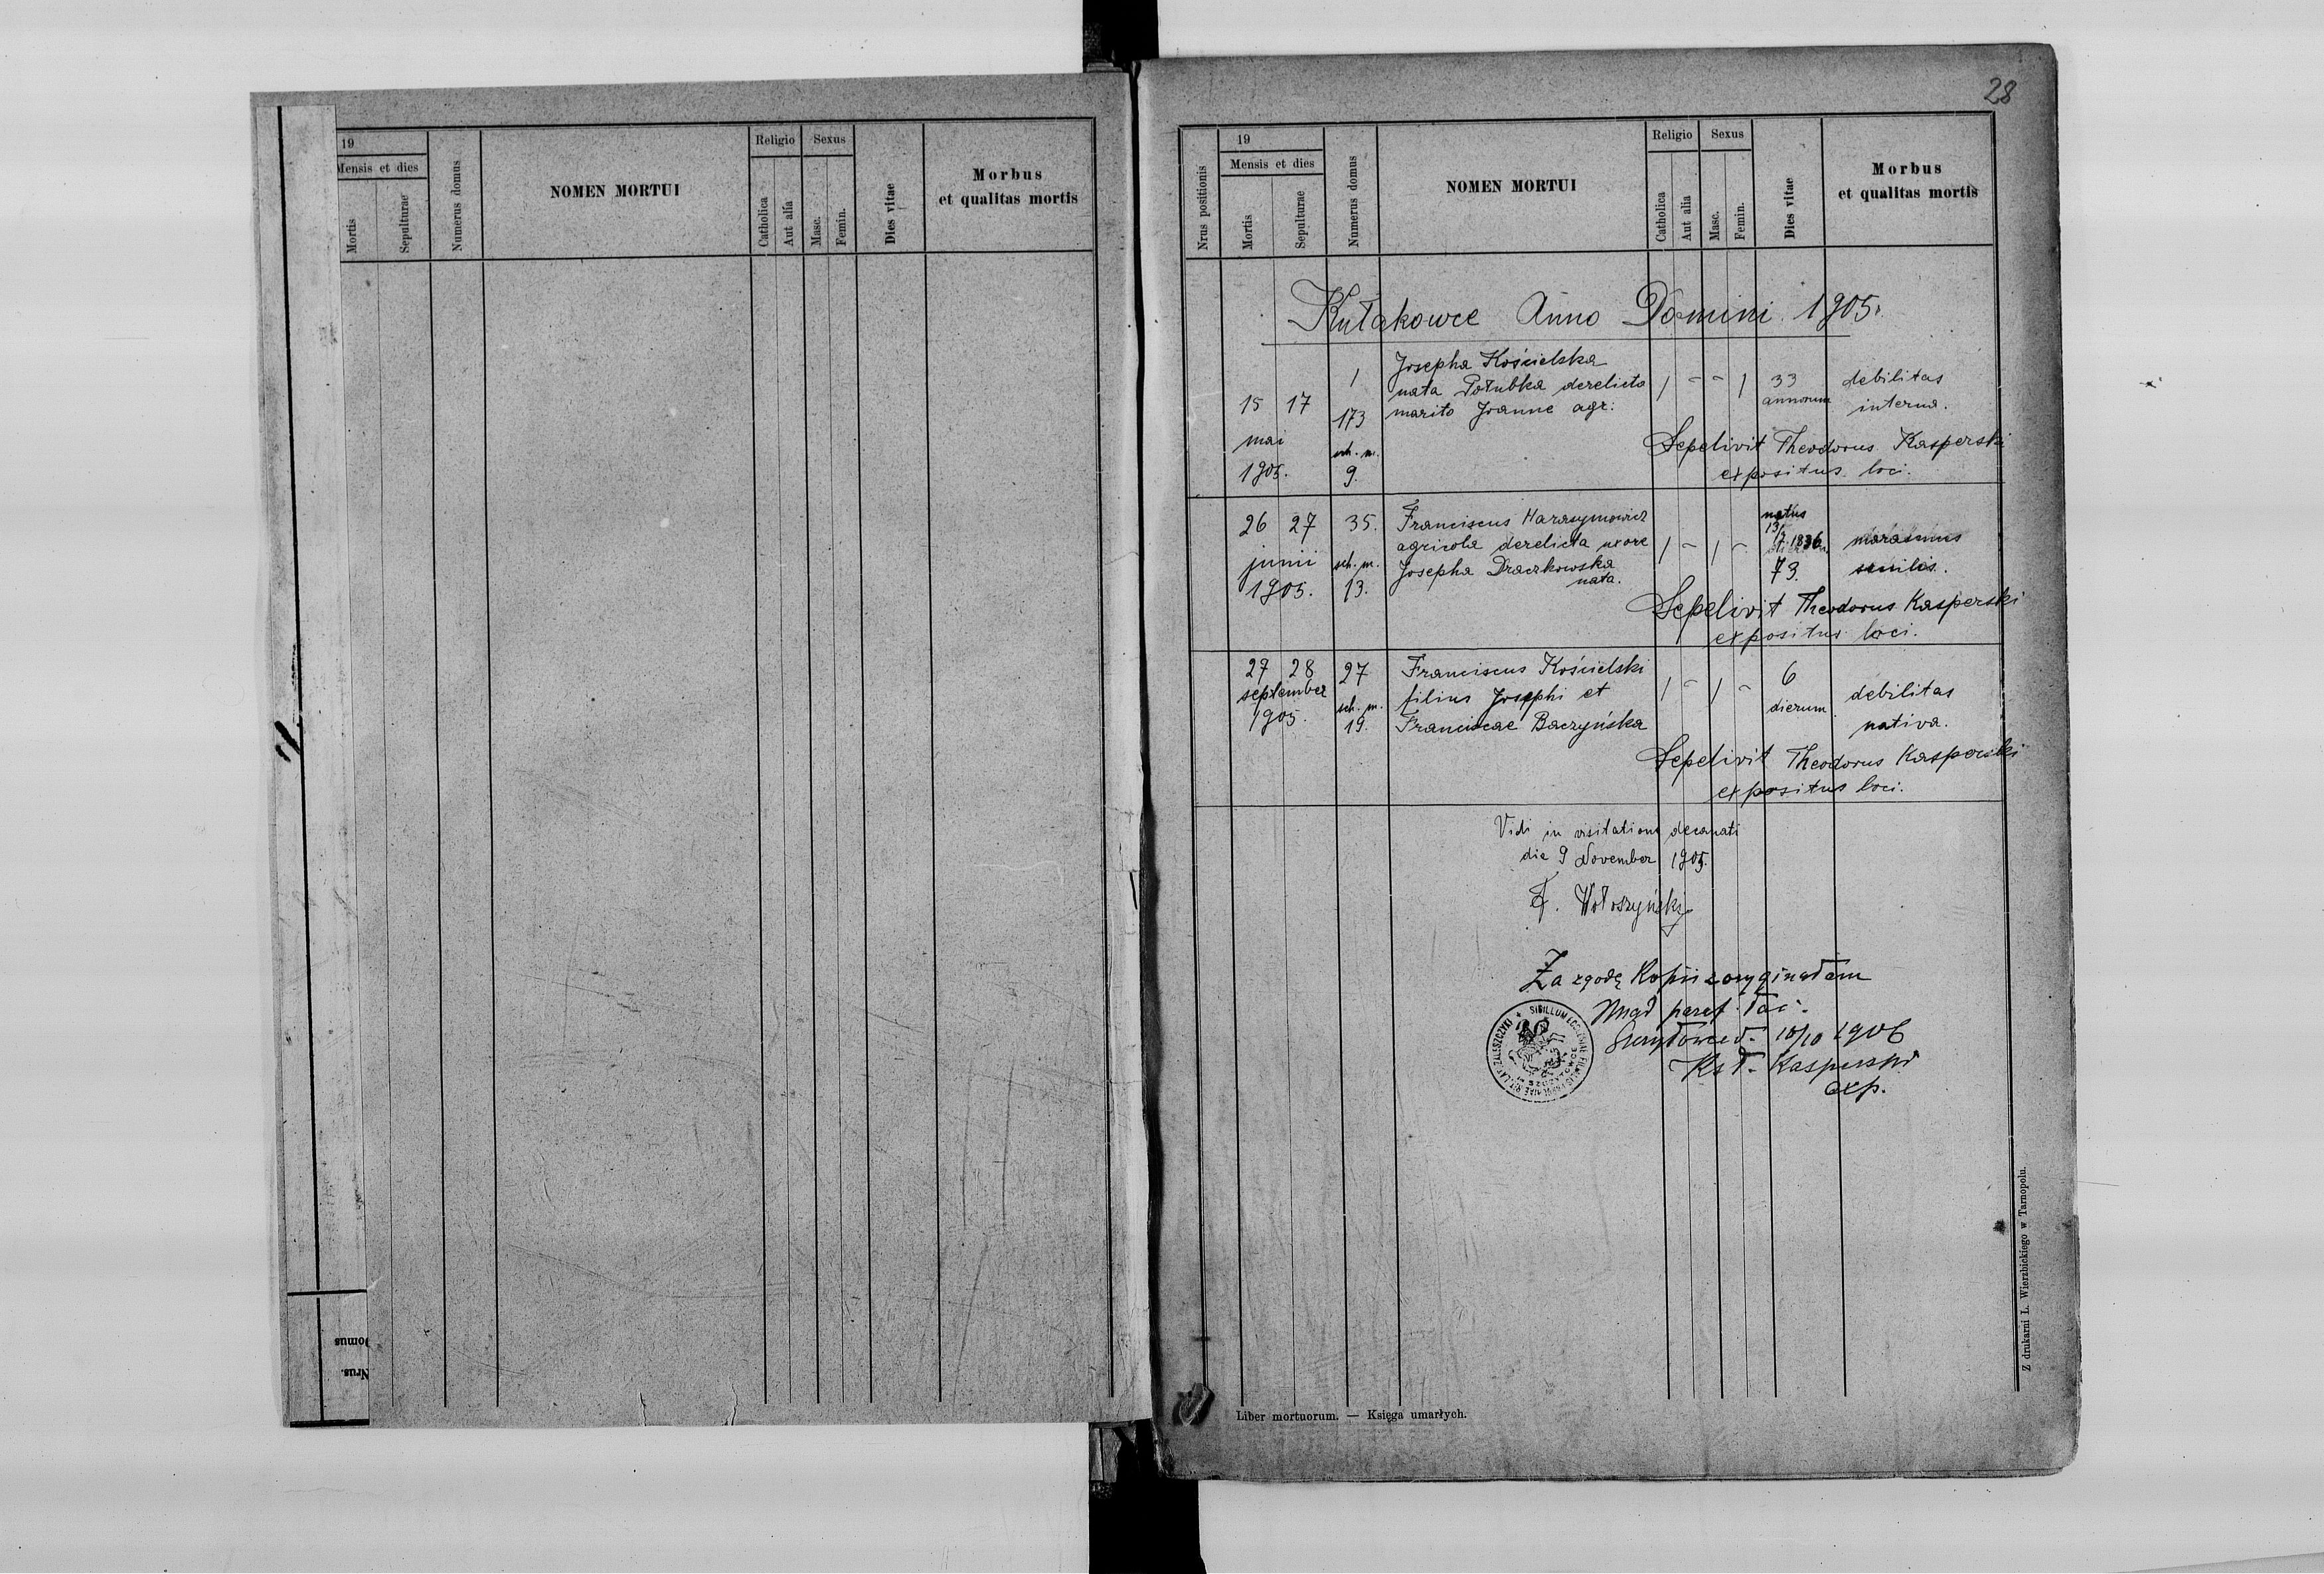 19
Mensis et dies
Mortis
Sepulturae
Numerus domus
NOMEN MORTUI
Religio
Catholica
Aut alia
Sexus
Masc.
Femin.
Dies vitae
Morbus
et qualitas mortis
Domus
Nrus.
28
Nrus positionis
19
Mensis et dies
Mortis
Sepulturae
Numerus domus
NOMEN MORTUI
Religio
Catholica
Aut alia
Sexus
Masc.
Femin.
Dies vitae
Morbus
et qualitas mortis
Kułakowce Anno Domini 1905.
15 17
mai
1905.
1
173
sch. m.
9.
Josepha Kościelska
nata Połubka derelicto
marito Joanne agr:
1 - - 1
33
annorum
debilitas
interna.
Sepelivit Theodorus Kasperski
expositus loci.
26 27
junii
1905.
35.
sch. m.
13.
Franciscus Harasymowicz
agricola derelicta uxore
Josepha Draczkowska
nata.
1 - 1 -
natus
13/7 1836
73.
marasmus
senilis.
Sepelivit Theodorus Kasperski
expositus loci.
27 28
september
1905.
27
sch. m.
19.
Franciscus Kościelski
filius Josephi et
Franciscae Baczyńska
1 - 1 -
6
dierum
debilitas
nativa.
Sepelivit Theodorus Kasperski
expositus loci.
Vidi in visitatione decanati
die 9 November 1905.
F. Wołoszyński
Za zgodę kopii z oryginałem
Urząd paraf. łać.
10/10 1906
Ks T. Kasperski
exp.
SIGILLUM
Liber mortuorum. — Księga umarłych.
Z drukarni L. Wierzbickiego w Tarnopolu.